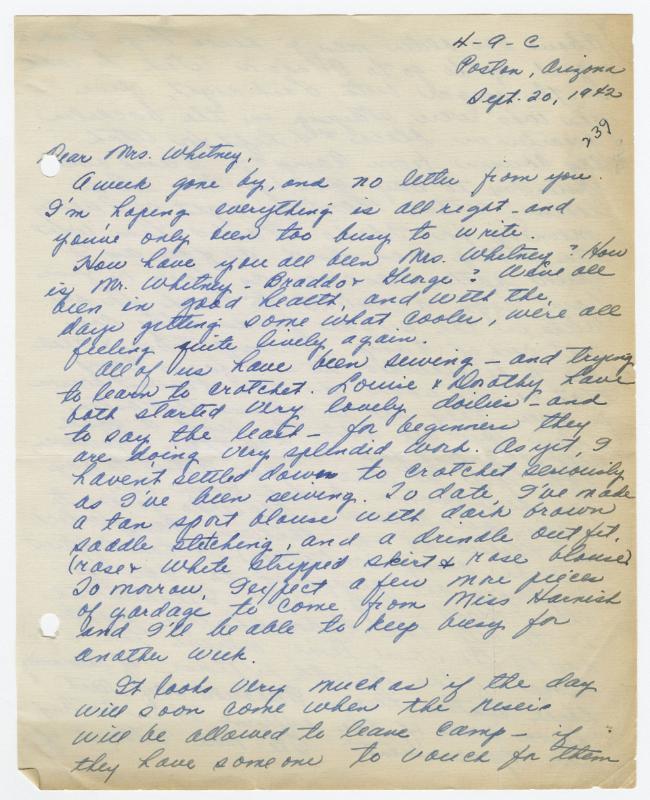 4-9-C
Poston, Arizona
Sept. 20, 1942
239
Dear Mrs. Whitney,
A week gone by, and no letter from you.
I'm hoping everything is all right - and
you've only been too busy to write.
How have you all been Mrs. Whitney? How
is Mr. Whitney - Braddo & George? We've all
been in good health, and with the
days getting some what cooler, we're all
feeling quite lively again.
All of us have been sewing - and trying
to learn to crotchet. Louise & Dorothy have
both started very lovely doilies - and
to say the least - for beginners they
are doing very splendid work. As yet, I
haven't settled down to crotchet seriously
as I've been sewing. To date, I've made
a tan sport blouse with dark brown
saddle stitching, and a drindle outfit.
(rose & white stripped skirt & rose blouse)
Tomorrow, I expect a few more pieces
of yardage to come from Miss Harnish
and I'll be able to keep busy for
another week.
It looks very much as if the day
will soon come when the niseis
will be allowed to leave camp - if
they have someone to vouch for them